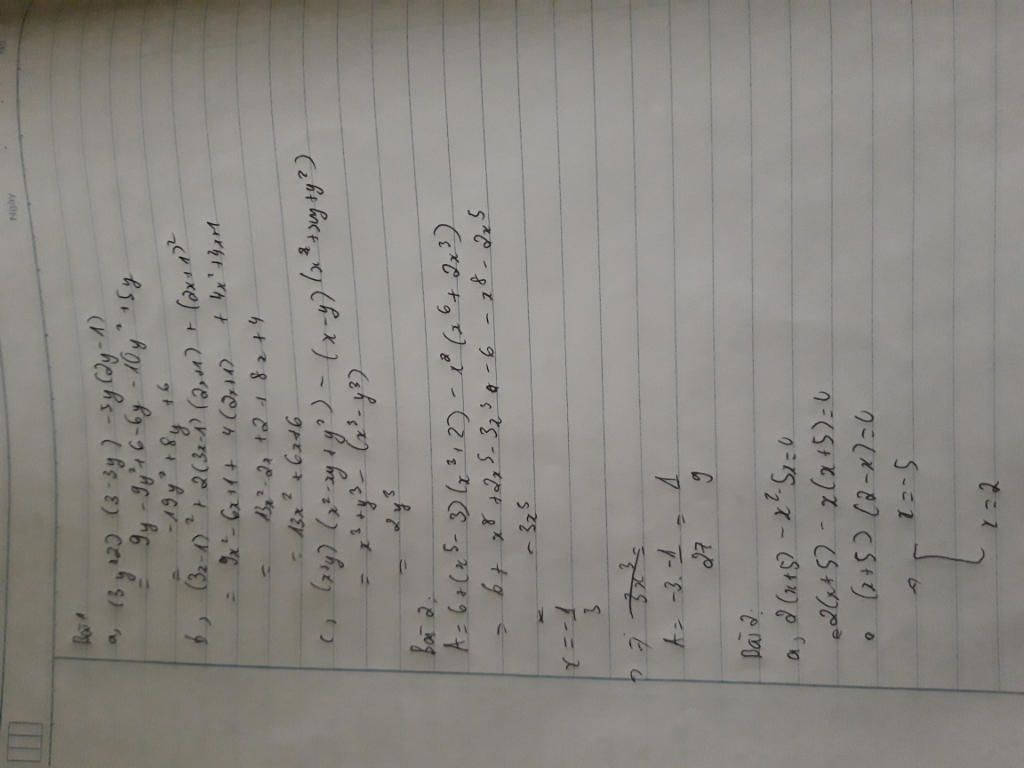 Bài 1
a, (3y+2) (3-3y) - 5y(2y-1)
= 9y - 9y²+6-6y - 10y² + 5y
= -19y² + 8y + 6
b, (3x-1)² + 2(3x-1)(2x+1) + (2x+1)²
= 9x² - 6x+1 + 4(2x+1) + 4x²+4x+1
= 13x² - 2x + 2 + 8x + 4
= 13x² + 6x+6
c, (x+y) (x²-xy+y²) - (x-y) (x²+xy+y²)
= x³+y³ - (x³-y³)
= 2y³
Bài 2.
A = 6+(x⁵-3)(x³+2) - x²(x⁶+2x³)
= 6+ x⁸+2x⁵-3x³ - 6 - x⁸ - 2x⁵
= -3x³
x = -1
3
=> 3x³=
A= -3. -1 = 1
27 9
Bài 2.
a, 2(x+5) - x²-5x=0
=2(x+5) - x(x+5)=0
(x+5) (2-x)=0
x=-5
x=2